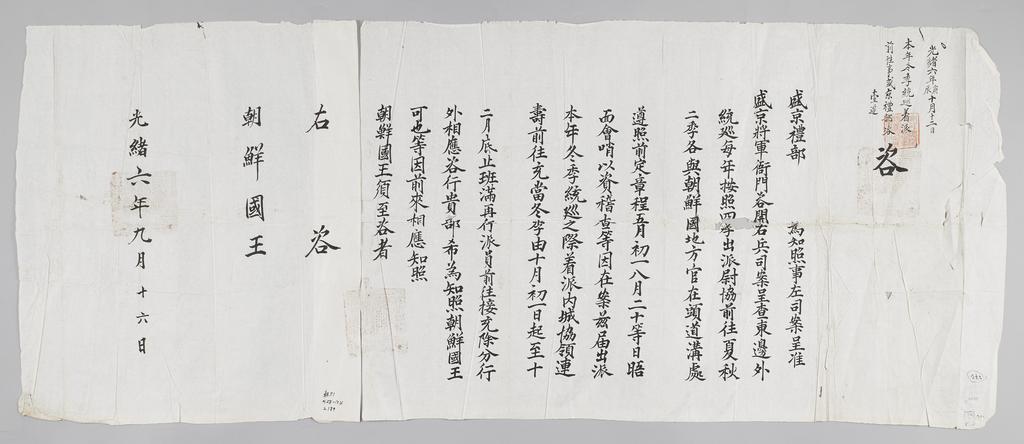 光緒六年庚辰十月十三日
本年冬季統巡着派
前往事盛京禮部咨
壹道
咨
盛京禮部　　為知照事左司案呈准
盛京將軍衙門咨開右兵司案呈查東邊外
統巡每年按照四季出派尉協前往夏秋
二季各與朝鮮國地方官在頭道溝處
遵照前定章程五月初一八月二十等日晤
面會哨以資稽查等因在案茲屆出派
本年冬季統巡之際着派內城協領連
壽前往充當冬季由十月初一日起至十
二月底止班滿再行派員前往接充除分行
外相應咨行貴部希為知照朝鮮國王
可也等因前來相應知照
朝鮮國王須至咨者
右　咨
朝鮮國王
光緒六年九月十六日